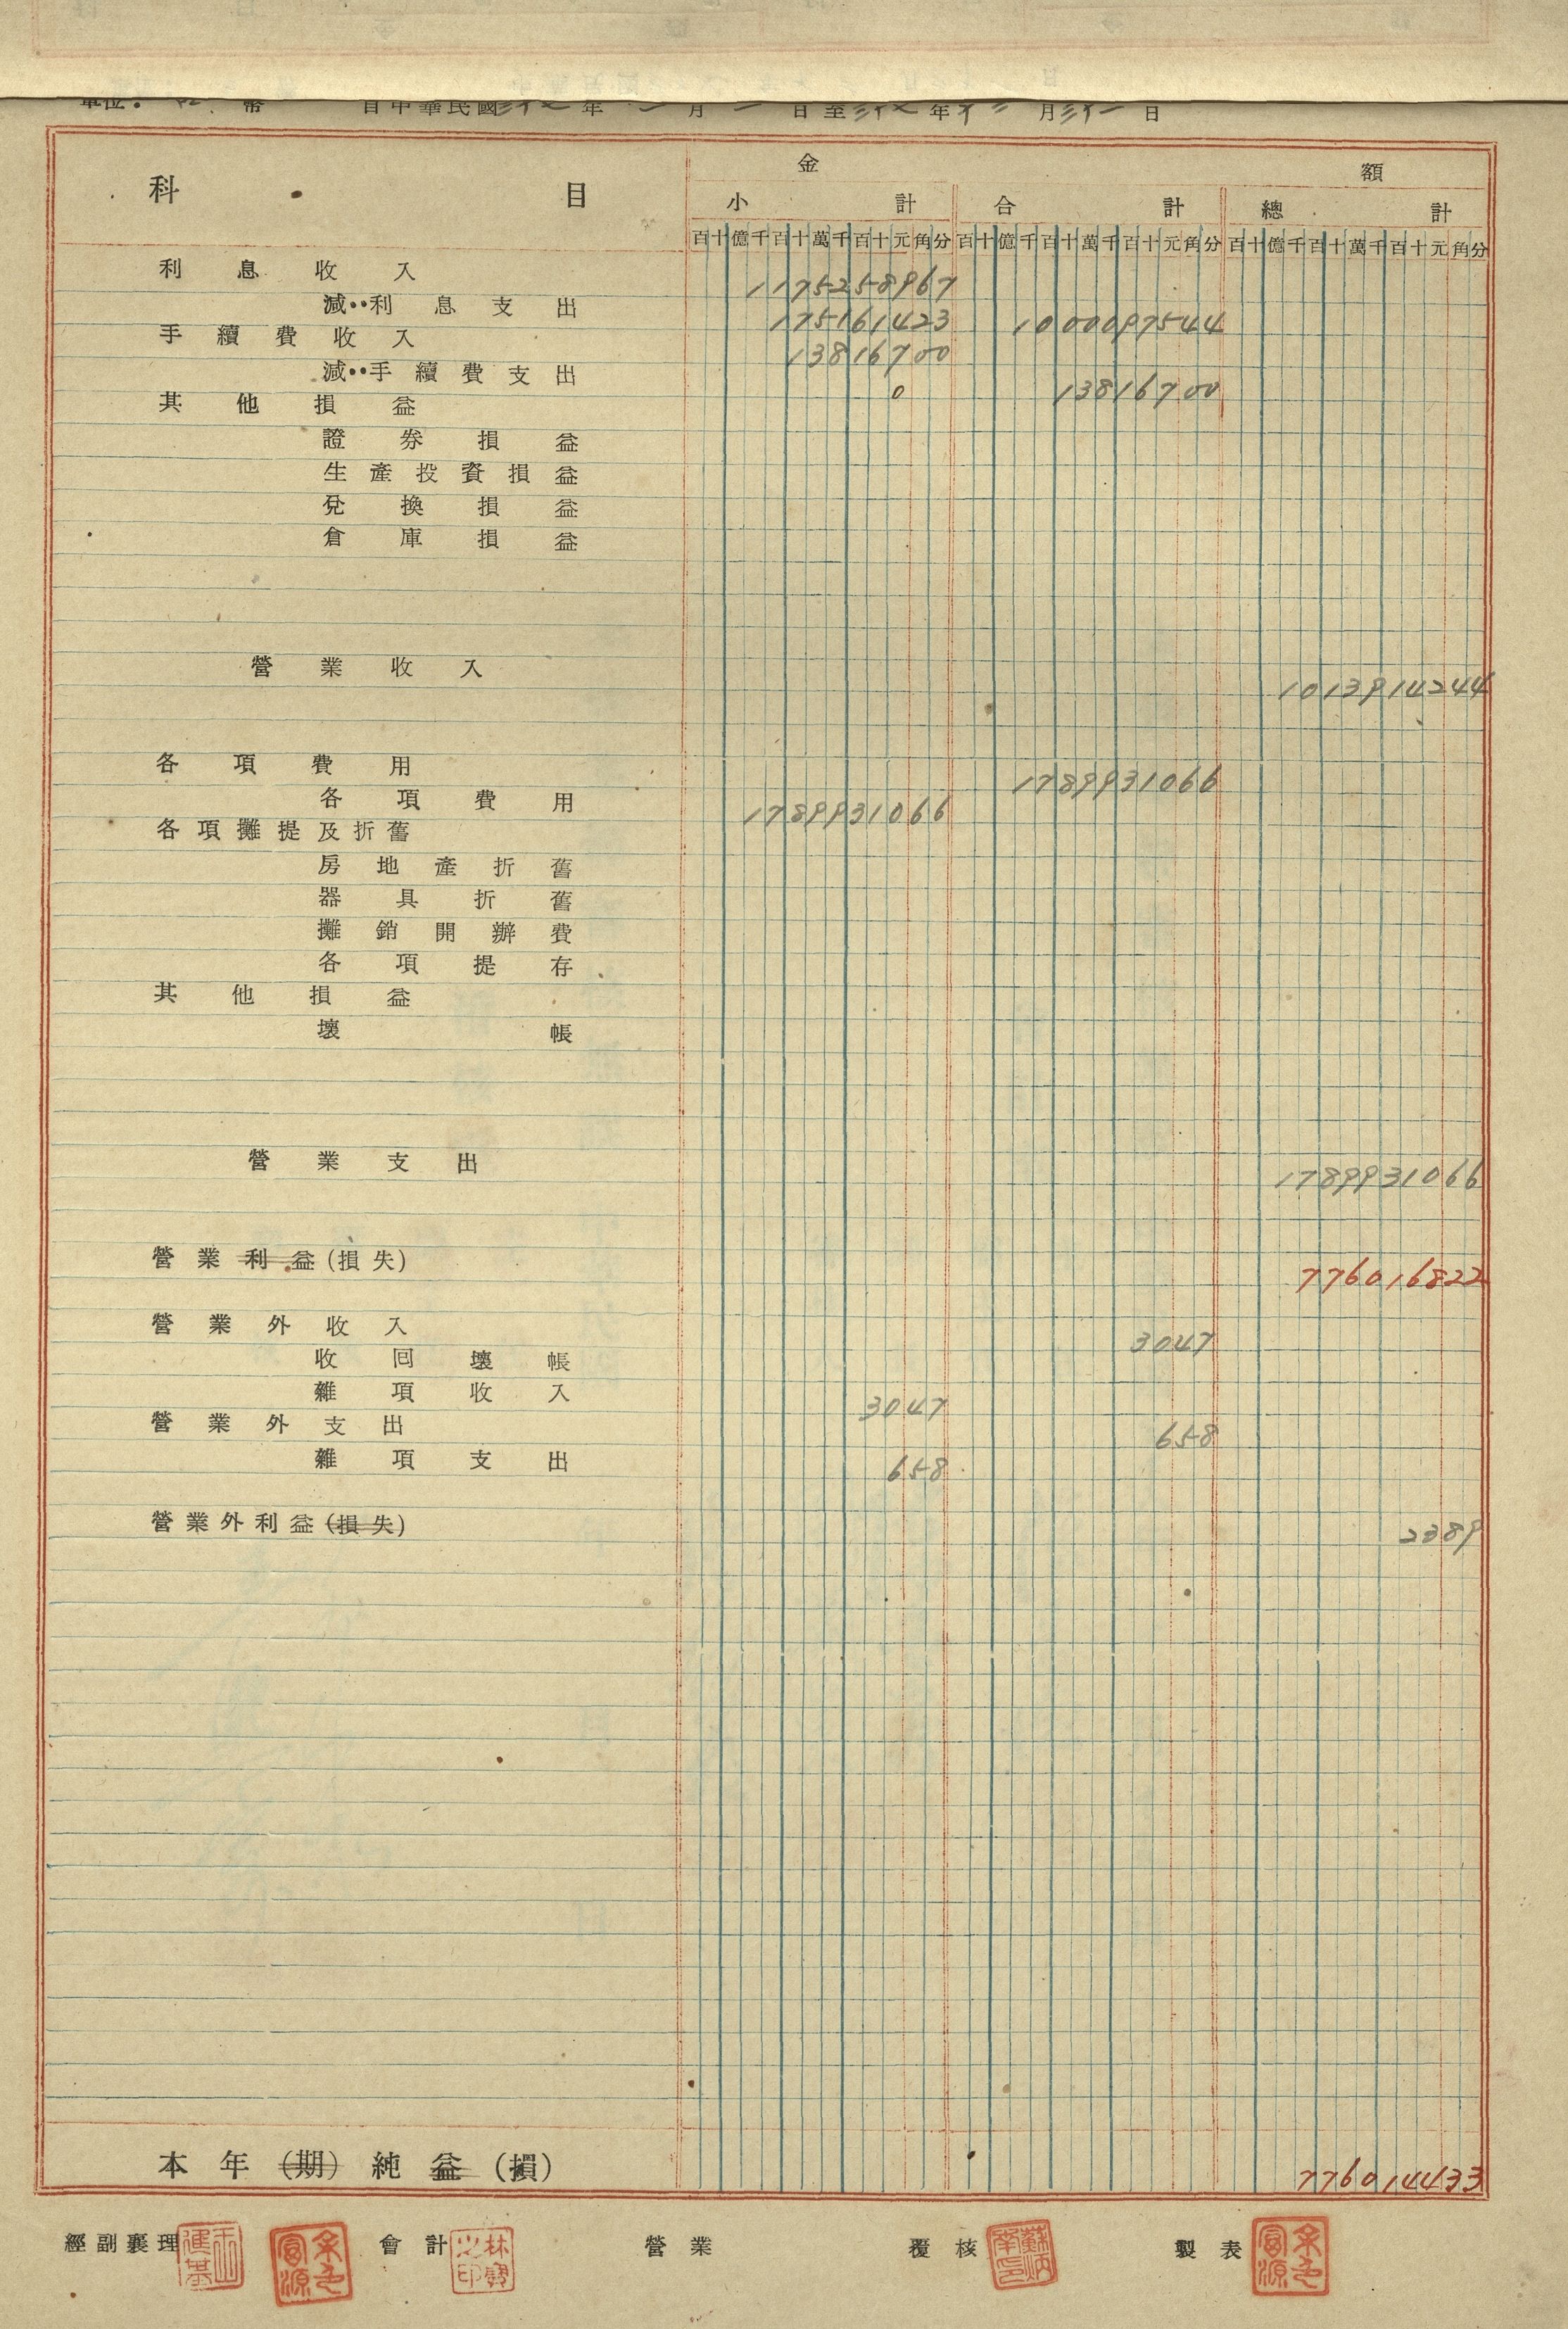 單位： 幣 自中華民國三十七年 一月一日至三十七年十二月三十一日
科目 金額
小計 合計 總計
百十億千百十萬千百十元角分 百十億千百十萬千百十元角分 百十億千百十萬千百十元角分
利息收入 11175258967
減：利息支出 175161423 10000097544
手續費收入 13816700
減：手續費支出 0 13816700
其他損益
證券損益
生產投資損益
兌換損益
倉庫損益
營業收入 1013914244
各項費用 1789931066
各項費用 1789931066
各項攤提及折舊
房地產折舊
器具折舊
攤銷開辦費
各項提存
其他損益
壞帳
營業支出 1789931066
營業利益(損失) 776016822
營業外收入 3047
收回壞帳
雜項收入 3047
營業外支出 658
雜項支出 658
營業外利益(損失) 2389
本年(期)純益(損) 776014433
經副襄理 會計 營業 覆核 製表